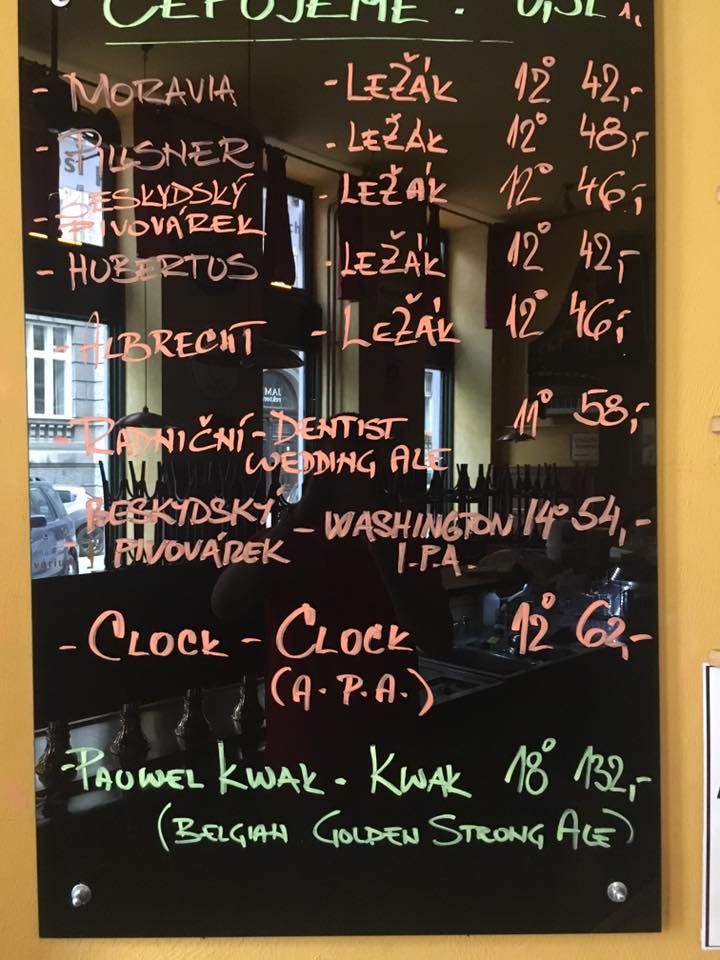 ČEPUJEME: 0,5L
- MORAVIA - LEŽÁK 12° 42,-
- PILLSNER - LEŽÁK 12° 48,-
BESKYDSKÝ
- PIVOVÁREK - LEŽÁK 12° 46,-
- HUBERTUS - LEŽÁK 12° 42,-
- ALBRECHT - LEŽÁK 12° 46,-
- RADNIČNÍ - DENTIST 11° 58,-
WEDDING ALE
BESKYDSKÝ
- PIVOVÁREK - WASHINGTON 14° 54,-
I.P.A.
- CLOCK - CLOCK 12° 62,-
(A.P.A.)
- PAUWEL KWAK - KWAK 18° 132,-
(BELGIAN GOLDEN STRONG ALE)